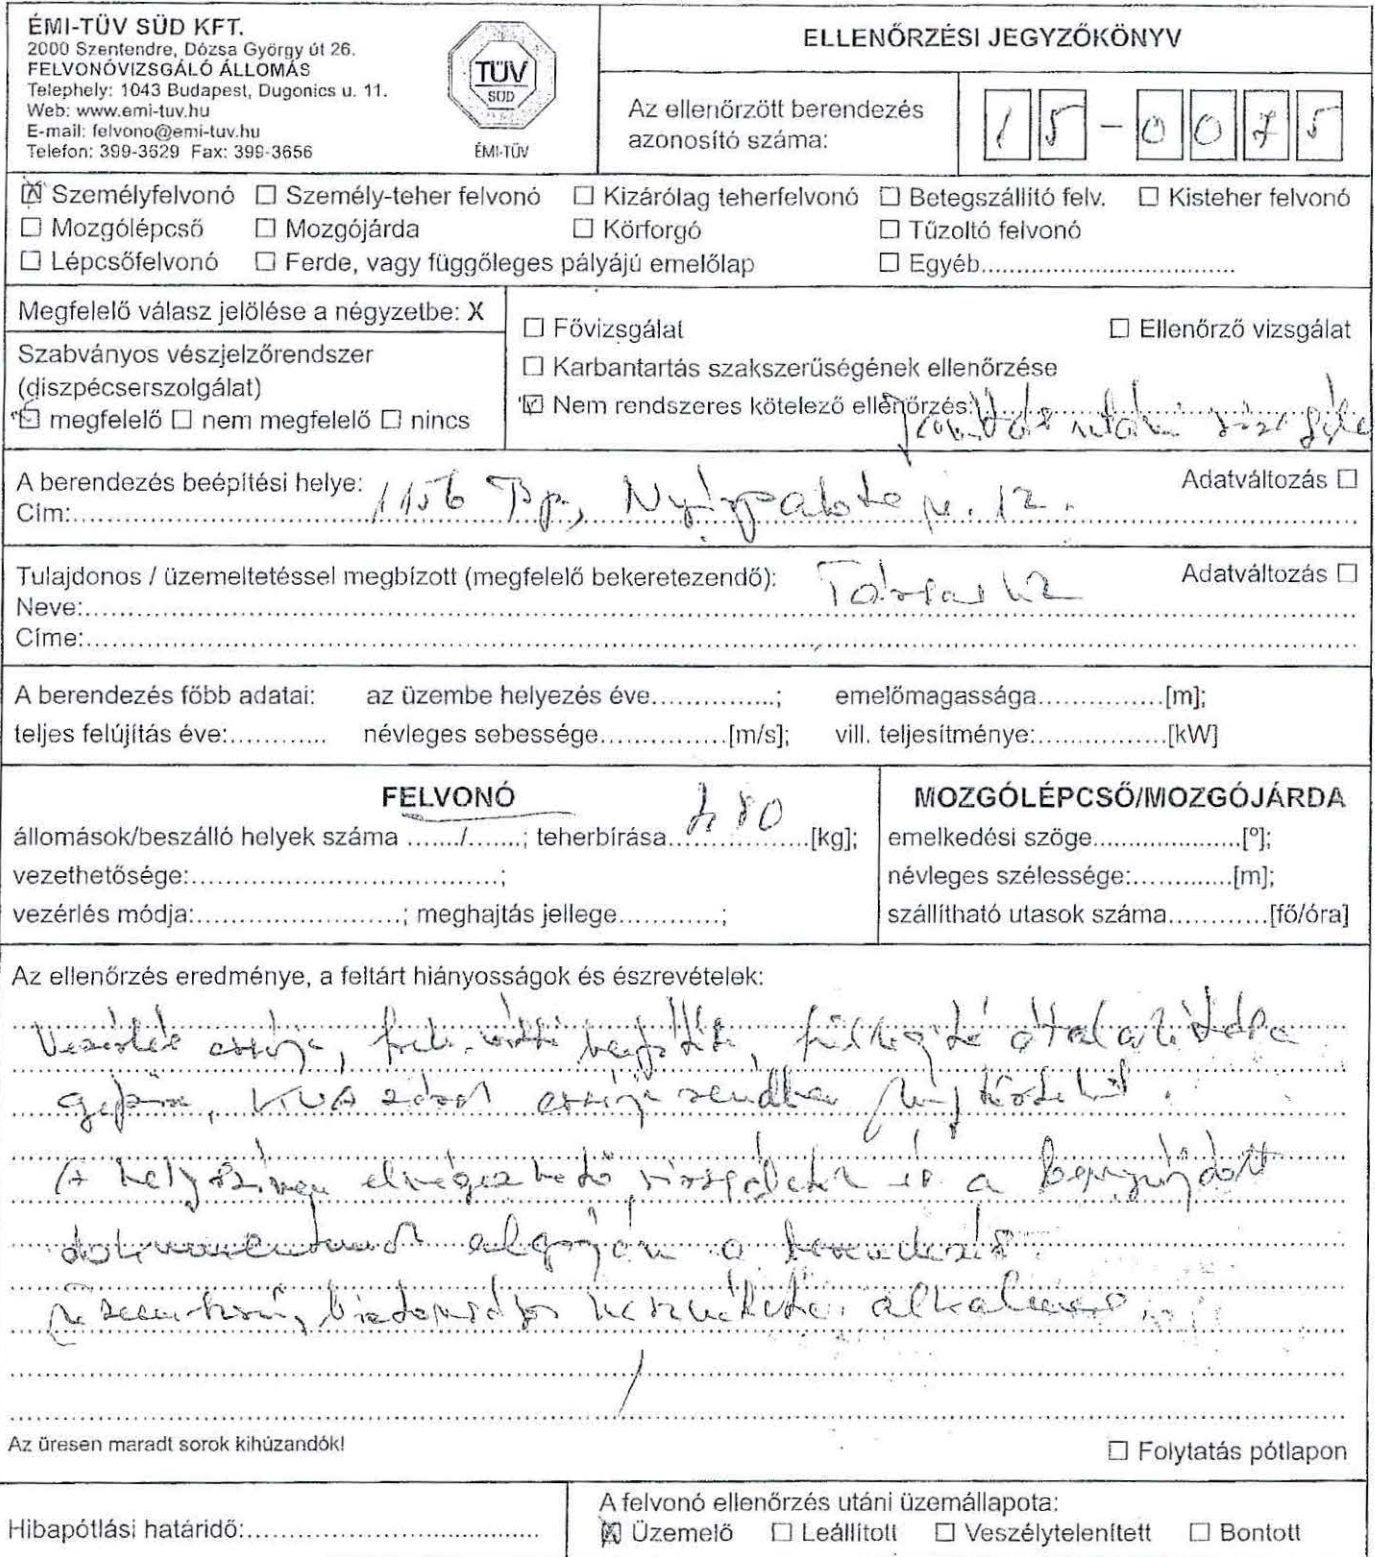 ÉMI-TÜV SÜD KFT.
2000 Szentendre, Dózsa György út 26.
FELVONÓVIZSGÁLÓ ÁLLOMÁS
Telephely: 1043 Budapest, Dugonics u. 11.
Web: www.emi-tuv.hu
E-mail: felvono@emi-tuv.hu
Telefon: 399-3629 Fax: 399-3656
TÜV
SÜD
ÉMI-TÜV
ELLENŐRZÉSI JEGYZŐKÖNYV
Az ellenőrzött berendezés
azonosító száma:
15-0075
☒ Személyfelvonó ☐ Személy-teher felvonó ☐ Kizárólag teherfelvonó ☐ Betegszállító felv. ☐ Kisteher felvonó
☐ Mozgólépcső ☐ Mozgójárda ☐ Körforgó ☐ Tűzoltó felvonó
☐ Lépcsőfelvonó ☐ Ferde, vagy függőleges pályájú emelőlap ☐ Egyéb.....................................
Megfelelő válasz jelölése a négyzetbe: X
Szabványos vészjelzőrendszer
(diszpécserszolgálat)
☒ megfelelő ☐ nem megfelelő ☐ nincs
☐ Fővizsgálat ☐ Ellenőrző vizsgálat
☐ Karbantartás szakszerűségének ellenőrzése
☑ Nem rendszeres kötelező ellenőrzés: utáni
A berendezés beépítési helye: Adatváltozás ☐
Cím: 1156 Bp, Nyírpalota u. 12.
Tulajdonos / üzemeltetéssel megbízott (megfelelő bekeretezendő): Adatváltozás ☐
Neve: Társasház
Címe:
A berendezés főbb adatai: az üzembe helyezés éve...............; emelőmagassága...............[m];
teljes felújítás éve:............ névleges sebessége...............[m/s]; vill. teljesítménye:................[kW]
FELVONÓ
állomások/beszálló helyek száma ......./.......; teherbírása 480 [kg];
vezethetősége:....................................;
vezérlés módja:...........................; meghajtás jellege............;
MOZGÓLÉPCSŐ/MOZGÓJÁRDA
emelkedési szöge......................[°];
névleges szélessége:.............[m];
szállítható utasok száma............[fő/óra]
Az ellenőrzés eredménye, a feltárt hiányosságok és észrevételek:
Vezérlés cseréje, átalakítása
cseréje rendben megtörtént.
A helyszínen elvégezhető vizsgálatok és a benyújtott
dokumentumok alapján a berendezés
üzemszerű, biztonságos használatra alkalmas.
Az üresen maradt sorok kihúzandók!
☐ Folytatás pótlapon
Hibapótlási határidő:.......................................
A felvonó ellenőrzés utáni üzemállapota:
☒ Üzemelő ☐ Leállított ☐ Veszélytelenített ☐ Bontott